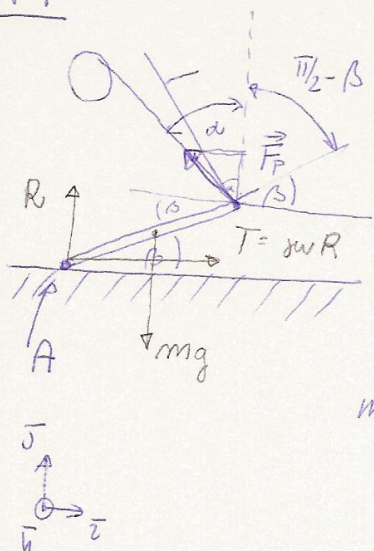 π/2 - β
α
F⃗p
R
(β
(β)
T = μR
(β)
A
mg
j̄
k̄ ī